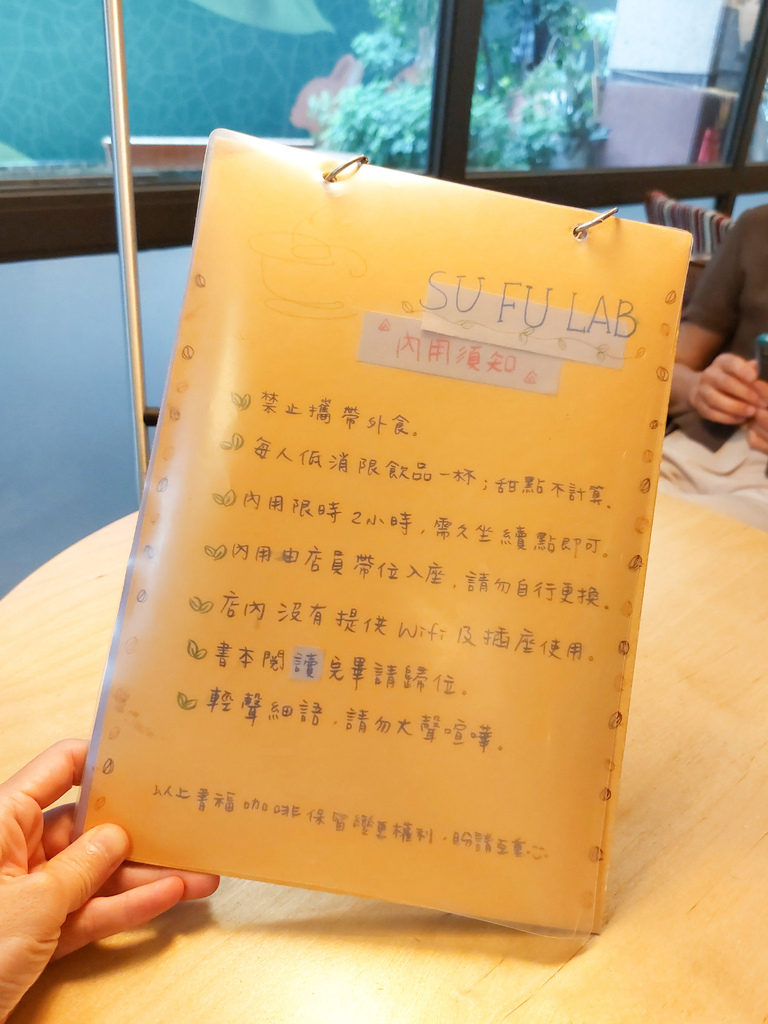 SU FU LAB
內用須知
禁止攜帶外食。
每人低消限飲品一杯;甜點不計算.
內用限時2小時,需久坐續點即可。
內用由店員帶位入座.請勿自行更換。
店內沒有提供Wifi及插座使用。
書本閱讀完畢請歸位。
輕聲細語.請勿大聲喧嘩。
以上書福咖啡保留變更權利.盼請互重